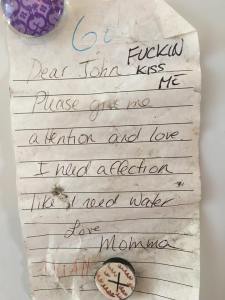 60
Dear John FUCKIN
KISS
ME
Please give me
attention and love
I need affection
like I need water
Love
Momma